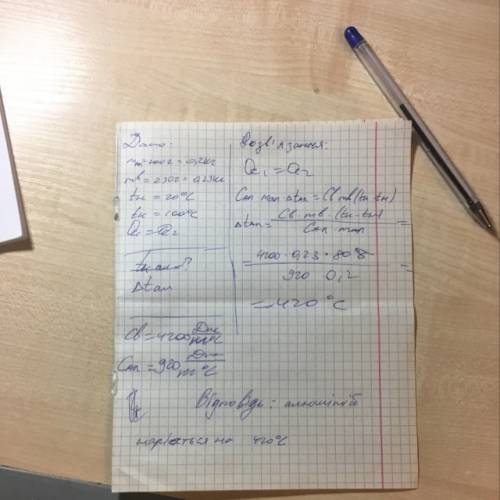 Дано:
m=200г=0,2кг
mв=230г=0,23кг
tн=20°C
tк=100°C
Q₁=Q₂
Δtал
Cв=4200 Дж/кг°C
Cал=920 Дж/кг°C
Розв'язання:
Q₁=Q₂
Cал mал Δtал=Cв mв(tк-tн)
Δtал= Cв · mв · (tк-tн) / Cал mал =
= 4200·0,23·80 / 920 0,2 =
=420°C
Відповідь: алюміній
нагріється на 420°C